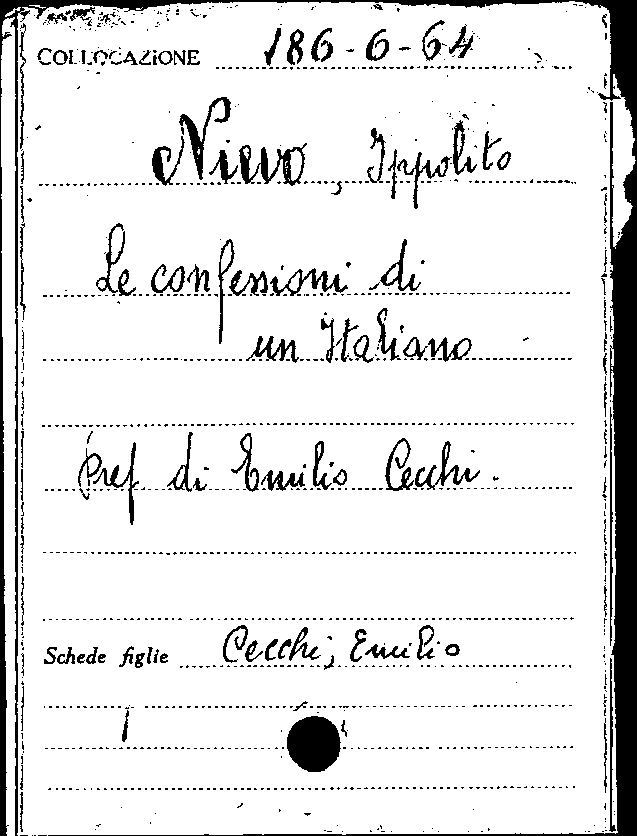 COLLOCAZIONE 186-6-64
Nievo, Ippolito
Le confessioni di
un Italiano
Pref di Emilio Cecchi.
Schede figlie Cecchi, Emilio
1